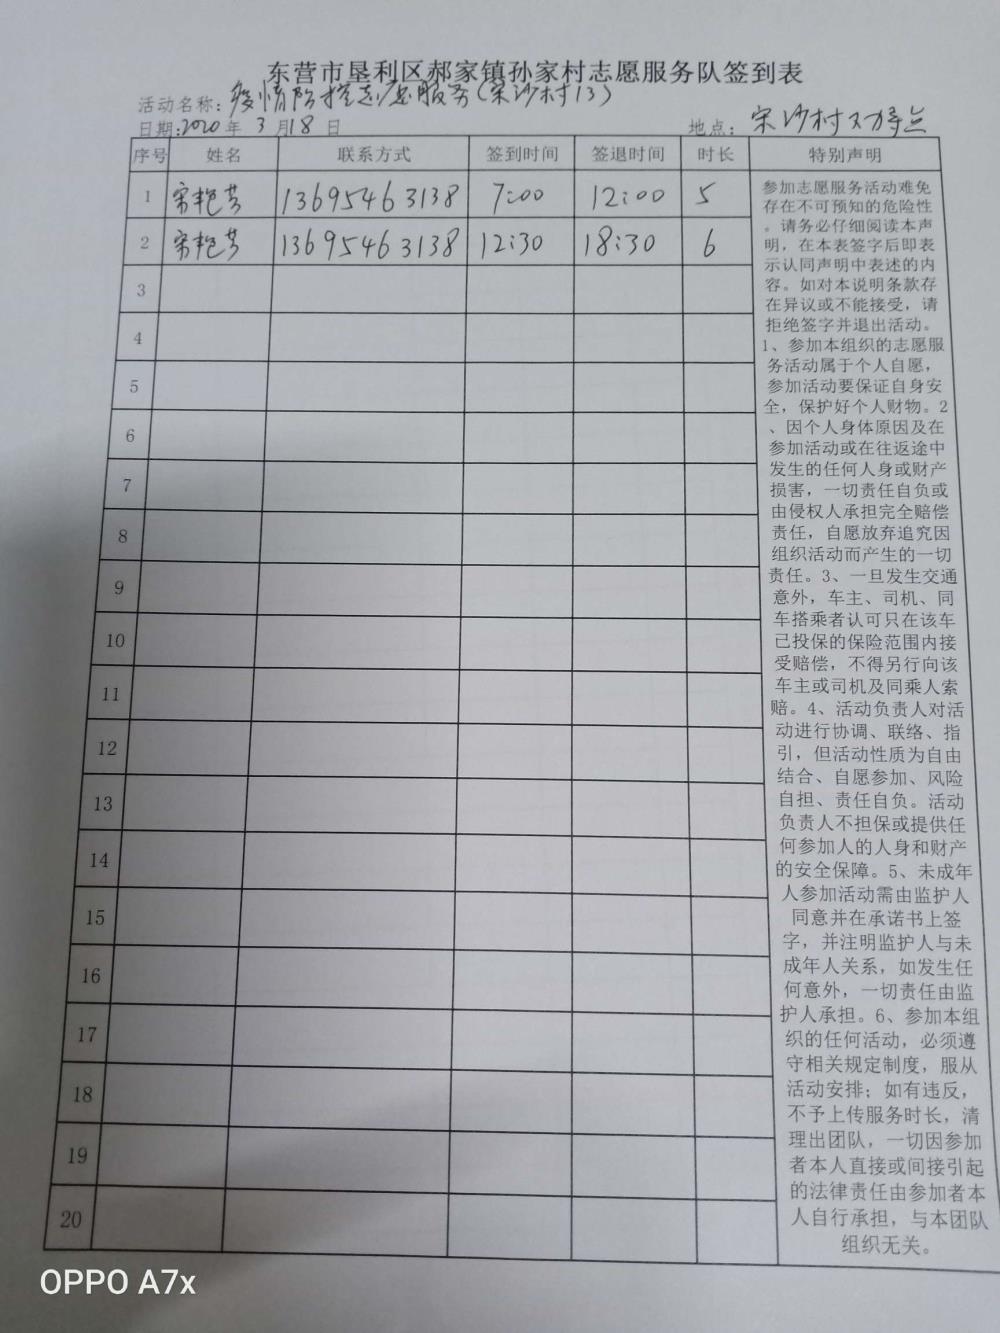 东营市垦利区郝家镇孙家村志愿服务队签到表
活动名称：疫情防控志愿服务（宋沙村13）
日期：2020年3月18日 地点：宋沙村
序号 姓名 联系方式 签到时间 签退时间 时长 特别声明
1 宋艳芳 13695463138 7:00 12:00 5
2 宋艳芳 13695463138 12:30 18:30 6
3
4
5
6
7
8
9
10
11
12
13
14
15
16
17
18
19
20
参加志愿服务活动难免
存在不可预知的危险性
。请务必仔细阅读本声
明，在本表签字后即表
示认同声明中表述的内
容。如对本说明条款存
在异议或不能接受，请
拒绝签字并退出活动。
1、参加本组织的志愿服
务活动属于个人自愿，
参加活动要保证自身安
全，保护好个人财物。2
、因个人身体原因及在
参加活动或在往返途中
发生的任何人身或财产
损害，一切责任自负或
由侵权人承担完全赔偿
责任，自愿放弃追究因
组织活动而产生的一切
责任。3、一旦发生交通
意外，车主、司机、同
车搭乘者认可只在该车
已投保的保险范围内接
受赔偿，不得另行向该
车主或司机及同乘人索
赔。4、活动负责人对活
动进行协调、联络、指
引，但活动性质为自由
结合、自愿参加、风险
自担、责任自负。活动
负责人不担保或提供任
何参加人的人身和财产
的安全保障。5、未成年
人参加活动需由监护人
同意并在承诺书上签
字，并注明监护人与未
成年人关系，如发生任
何意外，一切责任由监
护人承担。6、参加本组
织的任何活动，必须遵
守相关规定制度，服从
活动安排；如有违反，
不予上传服务时长，清
理出团队，一切因参加
者本人直接或间接引起
的法律责任由参加者本
人自行承担，与本团队
组织无关。
OPPO A7x